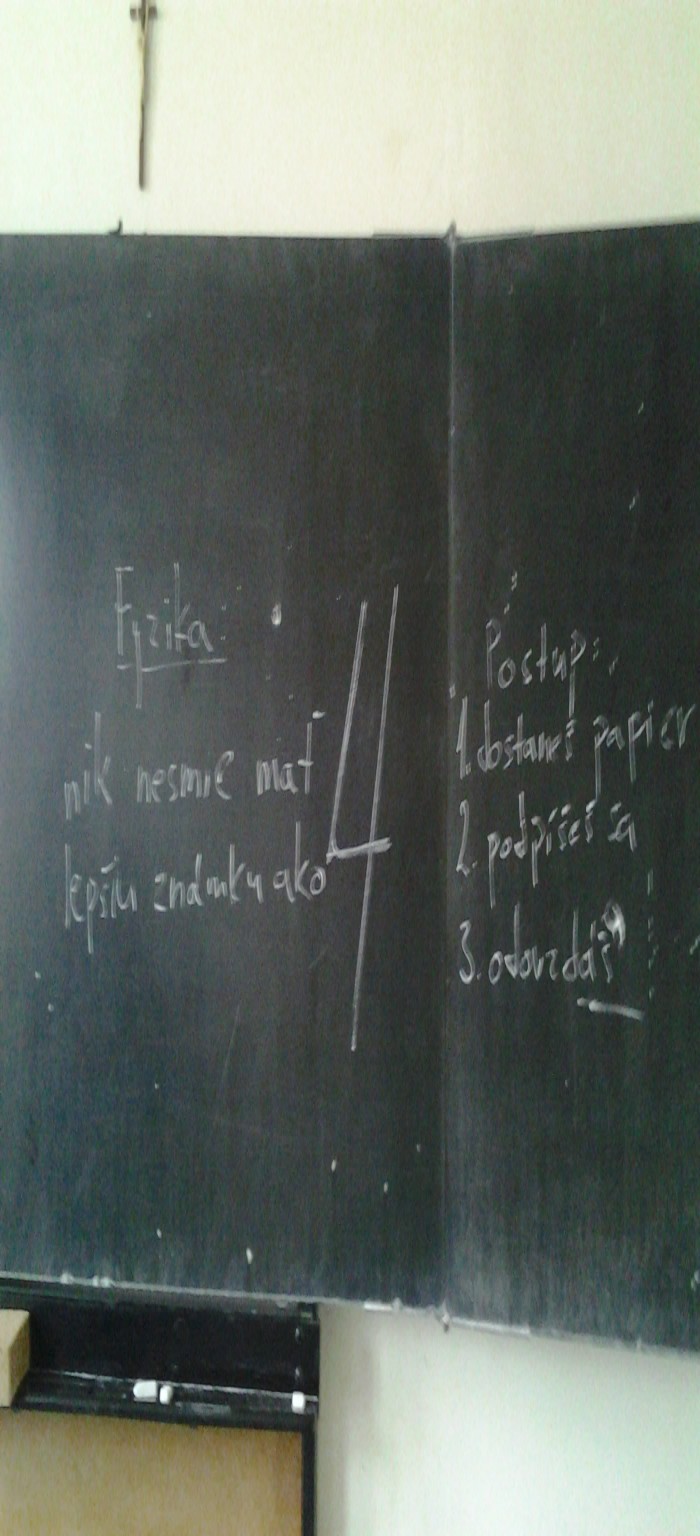 Fyzika:
nik nesmie mať
lepšiu známku ako
4
Postup:
1. dostaneš papier
2. podpíšeš sa
3. odovzdáš